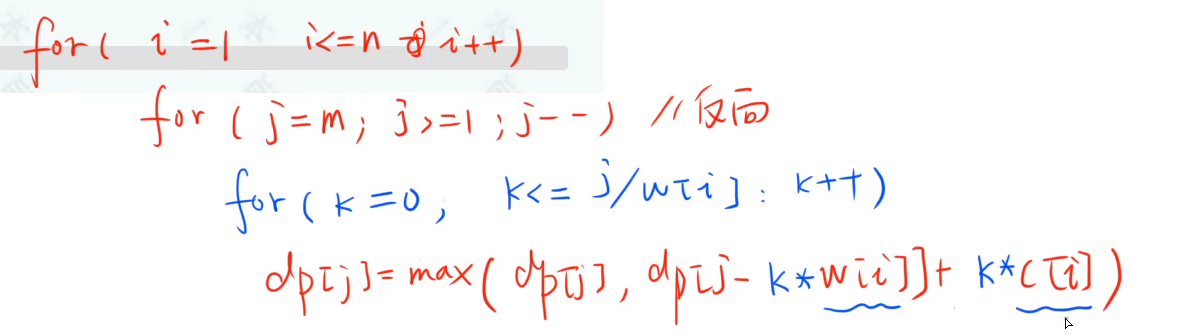 for( i=1 i<=n i++)
for ( j=m; j>=1 ; j-- ) // 反面
for( k=0, k<= j/w[i] : k++)
dp[j]= max( dp[j], dp[j- k*w[i]]+ k*c[i])